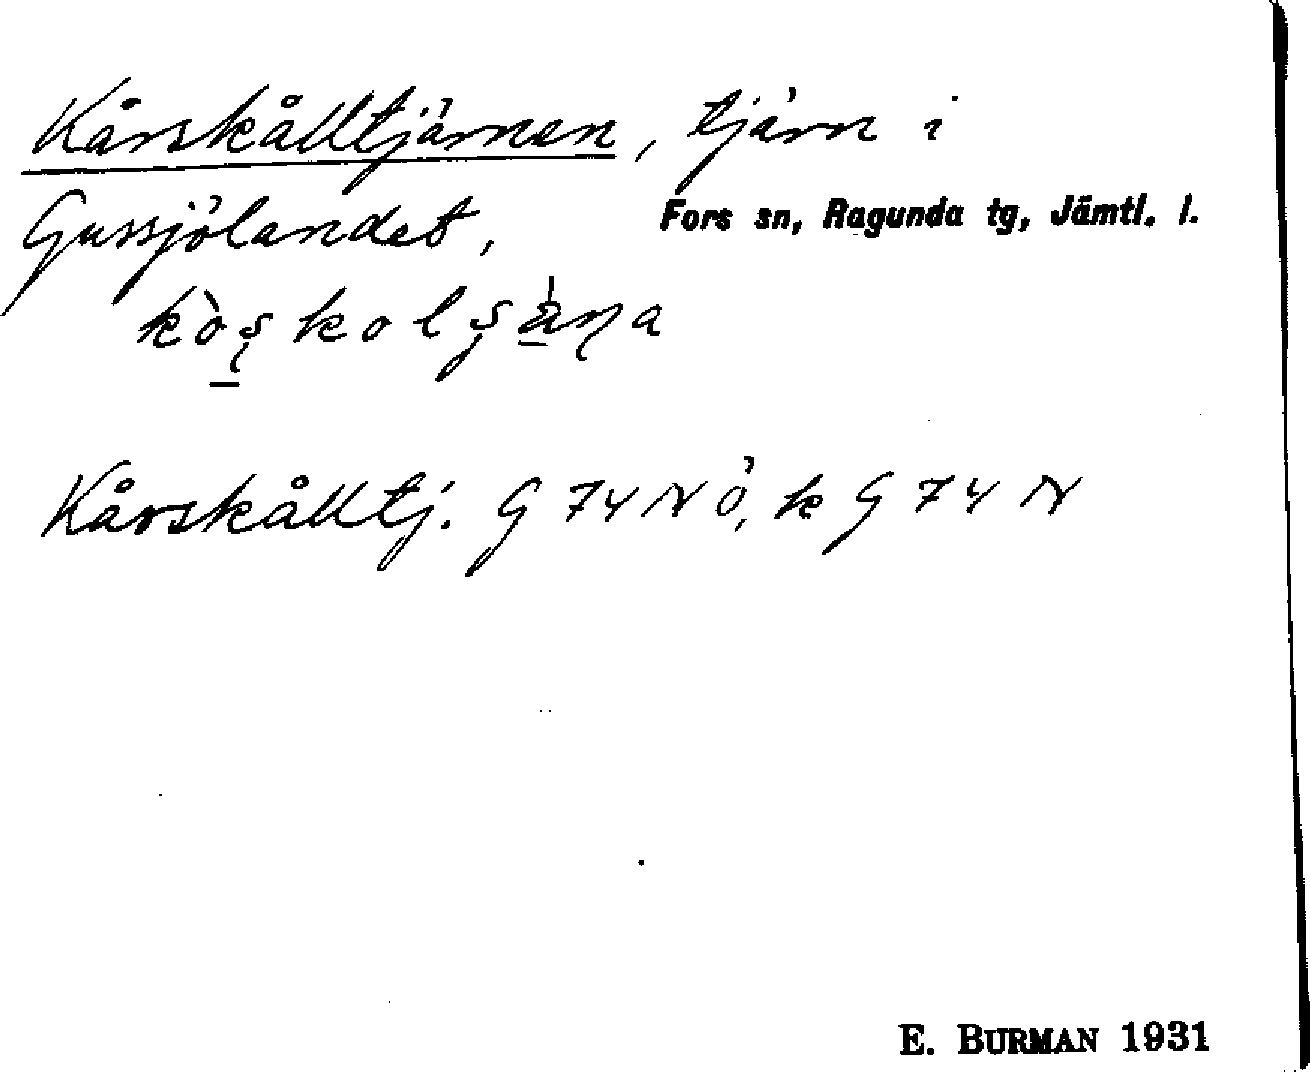 Kårskålltjärnen, tjärn i
Gussjölandet,
Fors sn, Ragunda tg, Jämtl. l.
Kårskålltj. G 74 N ö, k G 74 N
E. BURMAN 1931